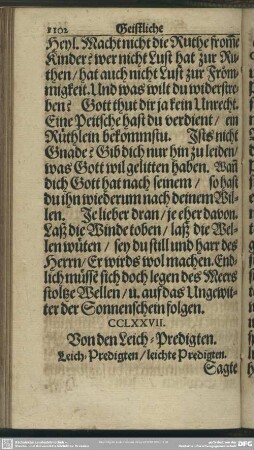 1102 Geistliche
Heyl. Macht nicht die Ruthe from̃e
Kinder? wer nicht Lust hat zur Ru-
then / hat auch nicht Lust zur From-
migkeit. Und was wilt du widerstre-
ben? Gott thut dir ja kein Unrecht.
Eine Peitsche hast du verdient / ein
Rüthlein bekommstu. Ists nicht
Gnade? Gib dich nur hin zu leiden/
was Gott wil gelitten haben. Wañ
dich Gott hat nach seinem / so hast
du ihn wiederum nach deinem Wil-
len. Je lieber dran / je eher davon.
Laß die Winde toben / laß die Wel-
len wüten / sey du still und harr des
Herrn / Er wirds wol machen. End-
lich müsse sich doch legen des Meers
stoltze Wellen / u. auf das Ungewit-
ter der Sonnenschein folgen.
CCLXXVII.
Von den Leich-Predigten.
Leich-Predigten / leichte Predigten.
Sagte